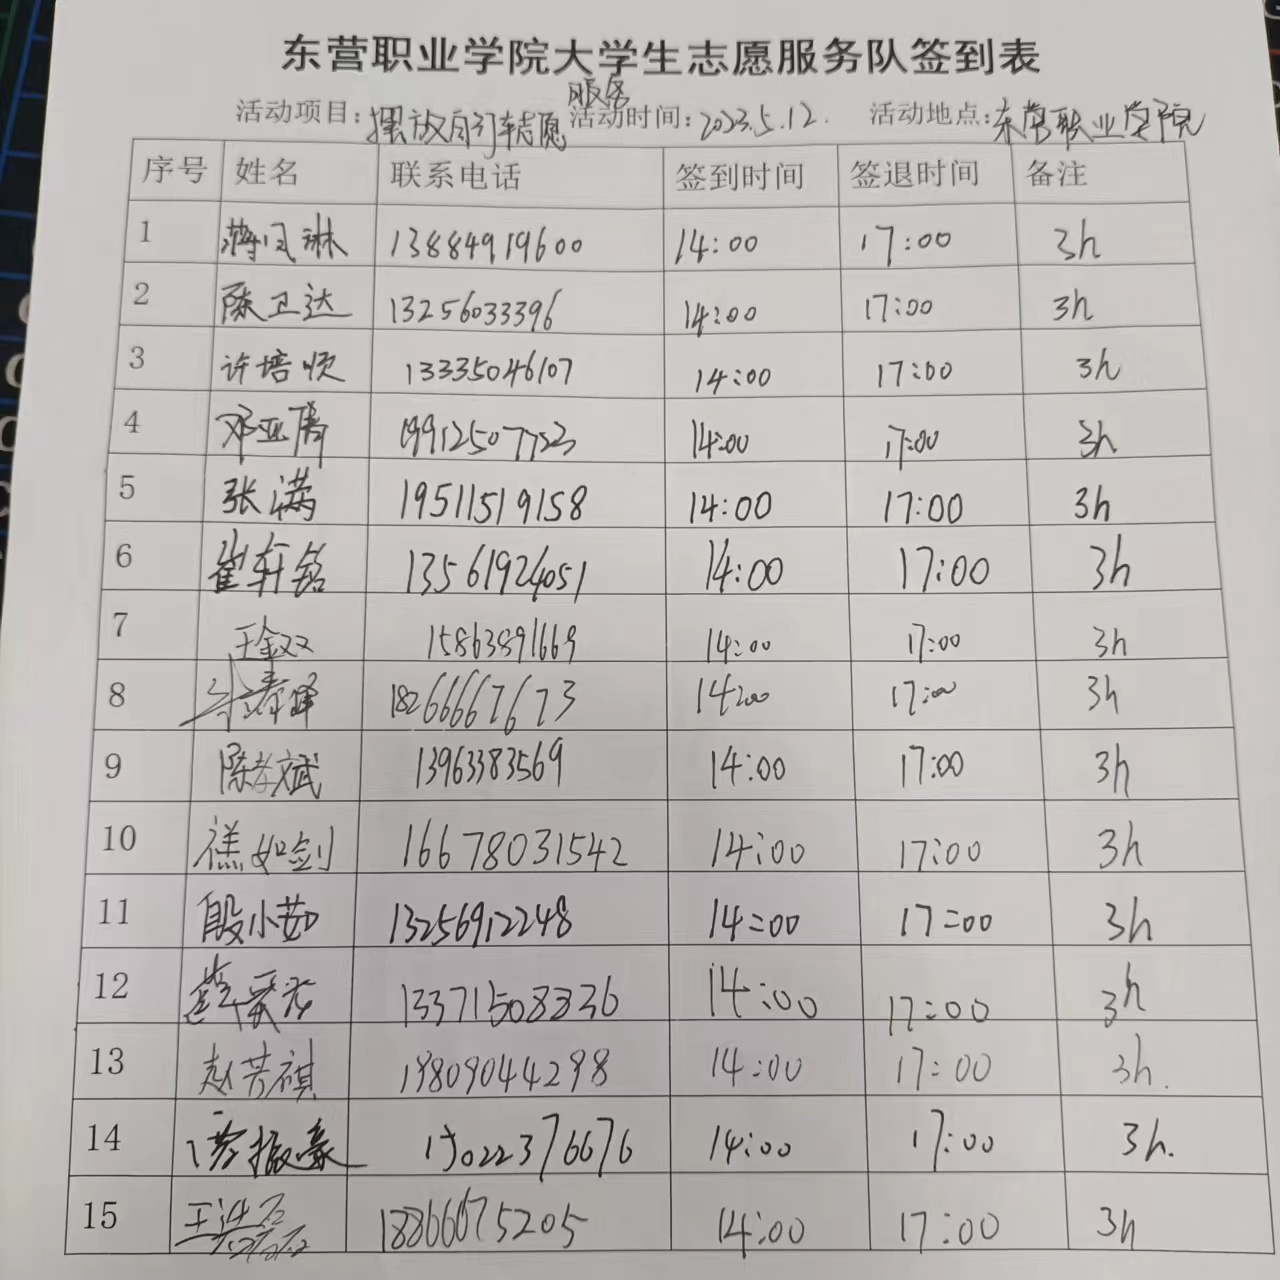 东营职业学院大学生志愿服务队签到表
活动项目：摆放自行车志愿服务 活动时间：2023.5.12. 活动地点：东营职业学院
序号 姓名 联系电话 签到时间 签退时间 备注
1 蒋凤琳 13884919600 14:00 17:00 3h
2 陈卫达 13256033396 14:00 17:00 3h
3 许培顺 13335046107 14:00 17:00 3h
4 邓亚 19912507723 14:00 17:00 3h
5 张满 19511519158 14:00 17:00 3h
6 崔轩铭 13561924051 14:00 17:00 3h
7 王金双 15863891669 14:00 17:00 3h
8 18266667673 14:00 17:00 3h
9 陈孝斌 13963383569 14:00 17:00 3h
10 禚如剑 16678031542 14:00 17:00 3h
11 段小茹 13256912248 14:00 17:00 3h
12 13371508336 14:00 17:00 3h
13 赵芳祺 19809044298 14:00 17:00 3h.
14 振豪 14:00 17:00 3h.
15 王 18866675205 14:00 17:00 3h